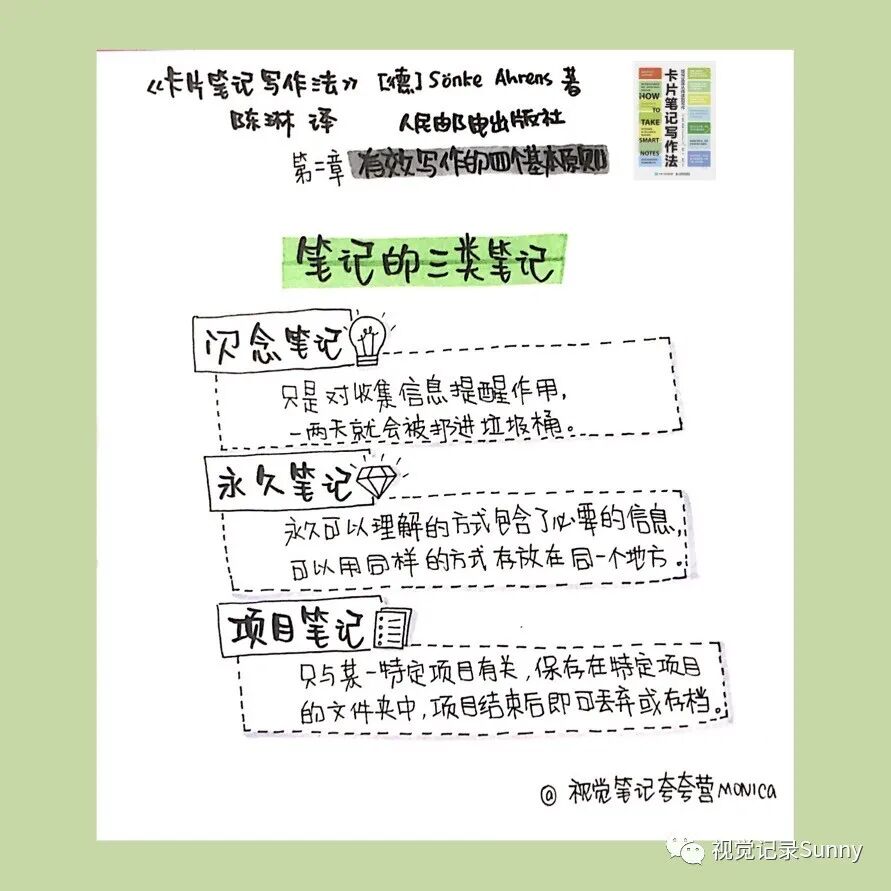 《卡片笔记写作法》 [德] Sönke Ahrens 著
陈琳 译 人民邮电出版社
第二章 有效写作的四个基本原则
卡片笔记写作法
HOW
TO
TAKE
SMART
NOTES
笔记的三类笔记
闪念笔记
只是对收集信息提醒作用,
一两天就会被扔进垃圾桶。
永久笔记
永久可以理解的方式包含了必要的信息,
可以用同样的方式存放在同一个地方.
项目笔记
只与某一特定项目有关,保存在特定项目
的文件夹中,项目结束后即可丢弃或存档。
@ 视觉笔记夸夸营MONICA
视觉记录Sunny